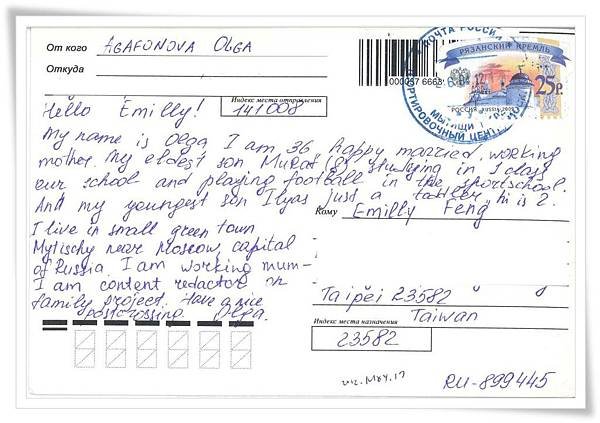 От кого AGAFONOVA OLGA
Откуда
ПОЧТА РОССИИ
РЯЗАНСКИЙ КРЕМЛЬ
РОССИЯ RUSSIA 2009
25р
МЫТИЩИ
СОРТИРОВОЧНЫЙ ЦЕНТР
Hello Emilly!
Индекс места отправления
141008
My name is Olga, I am 36 happy married, working
mother. My eldest son Murat (8) studying in 1 class
our school and playing football in the sportschool.
And my youngest son Ilyas just a toddler, hi is 2.
I live in small green town
Mytischy near Moscow, capital
of Russia. I am working mum–
I am content redactor on
family project. Have a nice
postcrossing. Olga.
Кому Emilly Feng
Taipei 23582
Taiwan
Индекс места назначения
23582
2012. May. 17
RU-899445